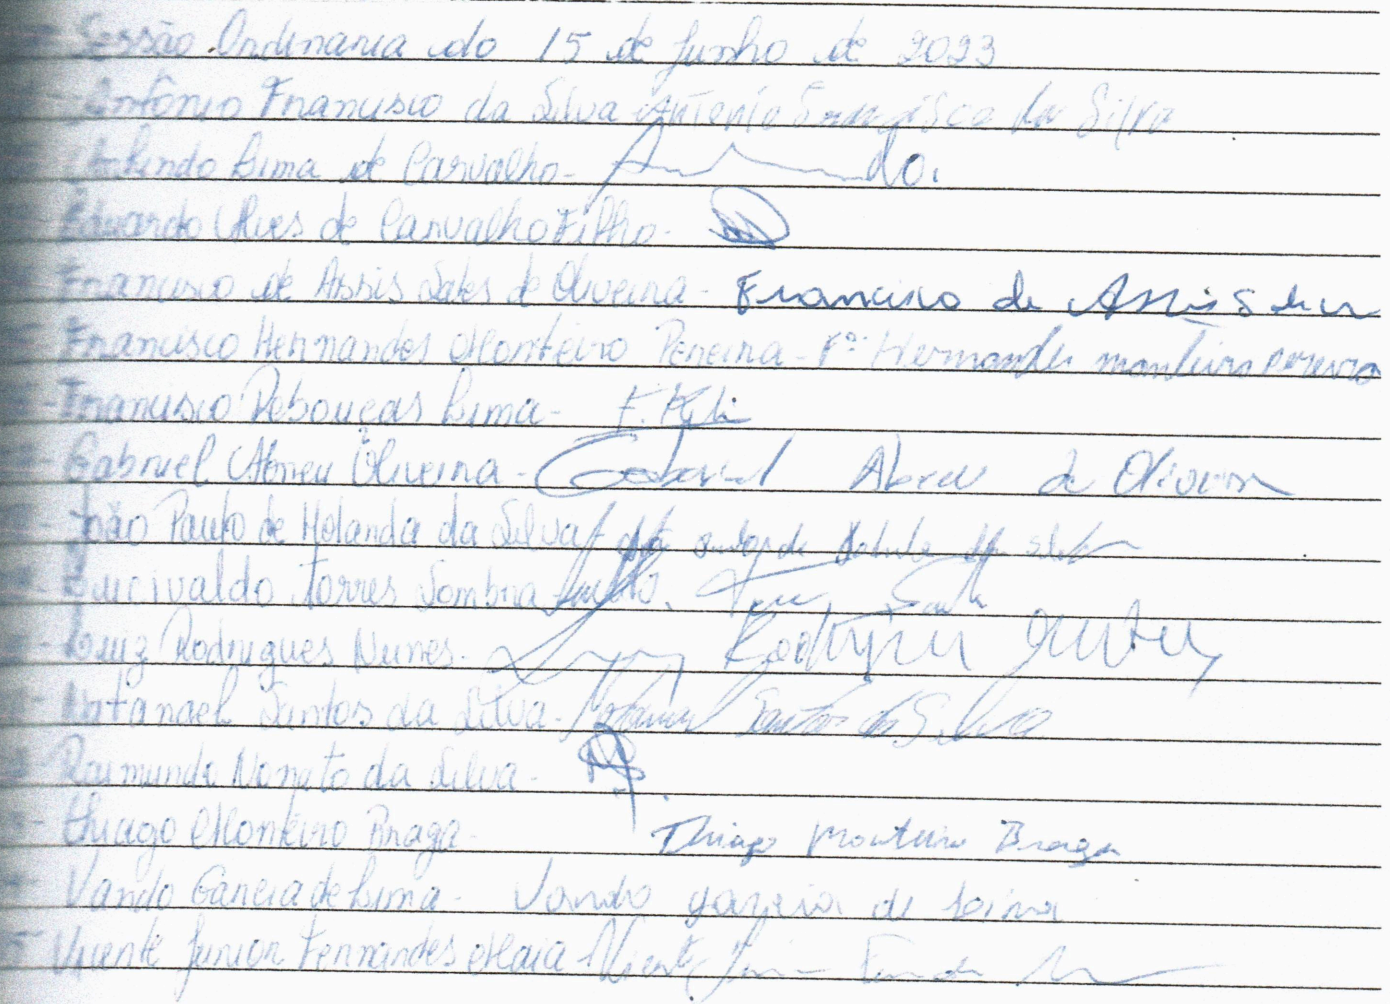 Sessão Ordinaria do 15 de Junho de 2023
Antônio Francisco da Silva Antonio Francisco da Silva
Arlindo Lima de Carvalho -
Eduardo Alves de Carvalho Filho -
Francisco de Assis Sales de Oliveira - Francisco de Assis
Francisco Hernandes Monteiro Pereira - Fº Hernandes monteiro pereira
- Francisco Rebouças Lima -
- Gabriel Abreu Oliveira - Gabriel Abreu de Oliveira
- João Paulo de Holanda da Silva
- Lucivaldo Torres Sombra
- Luiz Rodrigues Nunes - Rodrigues
- Natanael Santos da Silva - Natanael Santos da Silva
Raimundo Nonato da Silva -
- Thiago Monteiro Braga - Thiago Monteiro Braga
- Vando Garcia de Lima - Vando garcia de Lima
Vicente Junior Fernandes Maia - Vicente Junior